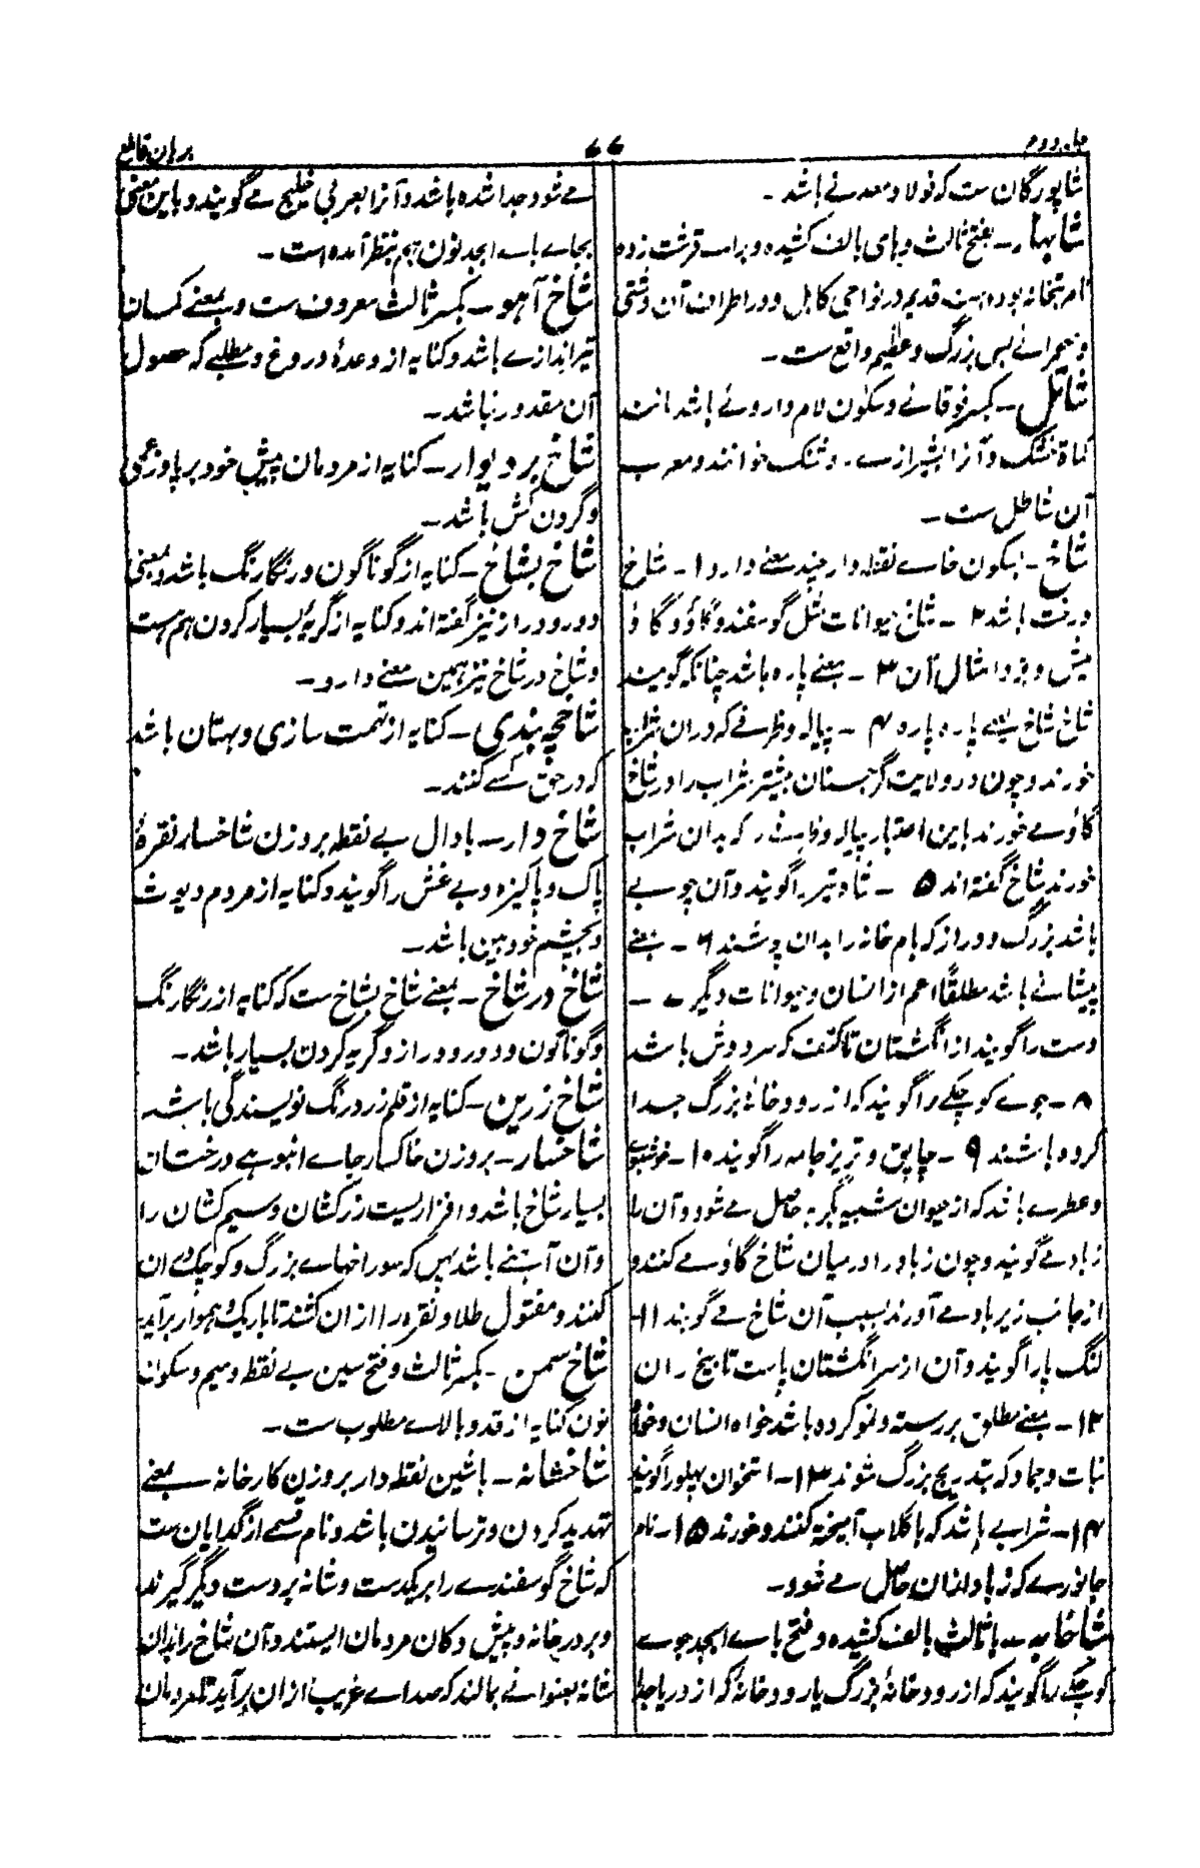 جلد دوم
۷۷
برہان قاطع
شاپورگان ست کہ فولاد معدنے باشد ۔
شابہار ۔ بفتح ثالث و ہای بالف کشیدہ و براے قرشت زدہ
نام بتخانہ بودہ است قدیم در نواحی کابل و در اطراف آن دشتی
و صحرائے بس بزرگ و عظیم واقع ست ۔
شاتل ۔ بکسر فوقانے و سکون لام داروئے باشد مانند
کماۃ خشک و آنرا بشیرازے روشنک خوانند و معرب
آن شاطل ست ۔
شاخ ۔ بسکون خاے نقطہ دار چند معنے دارد ۱ ۔ شاخ
درخت باشد ۲ ۔ شاخ حیوانات مثل گوسفند و گاؤ و گاؤ
میش و بز و امثال آن ۳ ۔ بمعنے پارہ باشد چنانکہ گویند
شاخ شاخ یعنے پارہ پارہ ۴ ۔ پیالہ و ظرفے کہ دران شراب
خورند و چون در ولایت گرجستان بیشتر شراب را در شاخ
گاؤ مے خورند باین اعتبار پیالہ و ظرفے را کہ بدان شراب
خورند شاخ گفتہ اند ۵ ۔ شاہ تیر را گویند و آن چوبے
باشد بزرگ و دراز کہ بام خانہ را بدان پوشند ۶ ۔ بمعنے
پیشانے باشد مطلقاً اعم از انسان و حیوانات دیگر ۷ ۔
دست را گویند از انگشتان تا کتف کہ سر دوش باشد
۸ ۔ جوے کوچکے را گویند کہ از رودخانۂ بزرگ جدا
کردہ باشند ۹ ۔ چاپق و تریز جامہ را گویند ۱۰ ۔ خوشبوے
و عطرے باشد کہ از حیوان شبیہ بگربہ حاصل مے شود و آن را
زباد مے گویند و چون زباد را در میان شاخ گاؤ مے کنند و
از جانب زیرباد مے آورند بسبب آن شاخ مے گویند ۱۱ ۔
لنگ پا را گویند و آن از سر انگشتان پاست تا بیخ ران
۱۲ ۔ بمعنے مطلق بر رستہ و نمو کردہ باشد خواہ انسان و خواہ
نبات و جماد کہ بتدریج بزرگ شوند ۱۳ ۔ استخوان پہلو را گویند
۱۴ ۔ شرابے باشد کہ با گلاب آمیختہ کنند و خورند ۱۵ ۔ نام
جانورے کہ زباد ازان حاصل مے شود ۔
شاخابہ ۔ باثالث بالف کشیدہ و فتح باے ابجد جوے
کوچکے را گویند کہ از رودخانۂ بزرگ یا رودخانۂ کہ از دریا جدا
مے شود جدا شدہ باشد و آنرا بعربی خلیج مے گویند و باین معنی
بجاے باے ابجد نون ہم بنظر آمدہ است ۔
شاخ آہو ۔ بکسر ثالث معروف ست و بمعنے کمان
تیراندازے باشد و کنایہ از وعدۂ دروغ و مطلبے کہ حصول
آن مقدور نباشد ۔
شاخ بر دیوار ۔ کنایہ از مردمان پیش خود برپا و زعمی
و گردن کش باشد ۔
شاخ بشاخ ۔ کنایہ از گوناگون و رنگارنگ باشد و بمعنی
دور و دراز نیز گفتہ اند و کنایہ از گریۂ بسیار کردن ہم ہست
و شاخ در شاخ نیز ہمین معنے دارد ۔
شاخچہ بندی ۔ کنایہ از تہمت سازی و بہتان باشد
کہ در حق کسے کنند ۔
شاخ دار ۔ بادال بے نقطہ بروزن شاخسار نقرۂ
پاک و پاکیزہ و بے غش را گویند و کنایہ از مردم دیوث
و بچشم خود بین باشد ۔
شاخ در شاخ ۔ بمعنے شاخ بشاخ ست کہ کنایہ از رنگارنگ
و گوناگون و دور و دراز و گریہ کردن بسیار باشد ۔
شاخ زرین ۔ کنایہ از قلم زرد رنگ نویسندگی باشد
شاخسار ۔ بروزن خاکسار جاے انبوہے درختان
بسیار شاخ باشد و افزاریست زرکشان و سیم کشان را
و آن آہنے باشد پہن کہ سوراخہاے بزرگ و کوچک دران
کنند و مفتول طلا و نقرہ را ازان کشند تا باریک و ہموار برآید
شاخ سمن ۔ بکسر ثالث و فتح سین بے نقطہ و میم و سکون
نون کنایہ از قد و بالاے مطلوب ست ۔
شاخشانہ ۔ باشین نقطہ دار بروزن کارخانہ بمعنے
تہدید کردن و ترسانیدن باشد و نام قسمے از گدایان ست
کہ شاخ گوسفندے را بر یکدست و شانہ بر دست دیگر گیرند
و بر درخانہ و پیش دکان مردمان ایستند و آن شاخ را بدان
شانہ بعنوانے بمالند کہ صداے غریب ازان برآید تا مردمان